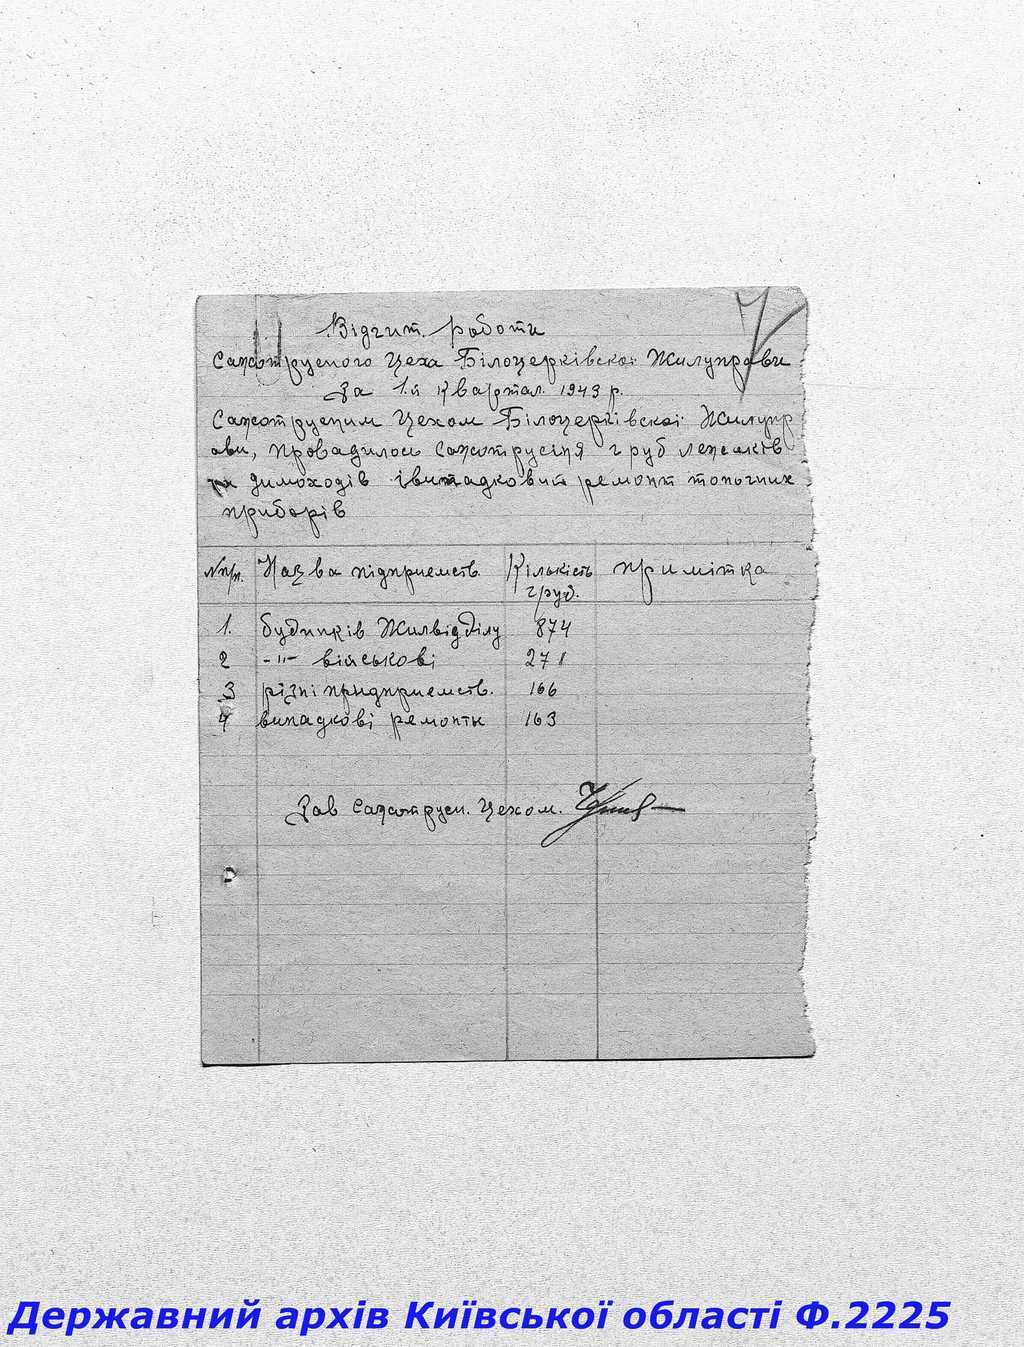 Відчит роботи
Сажотрусного Цеха Білоцерківської Жилуправи
за 1й квартал 1943 р.
Сажотрусним Цехом Білоцерківської Жилупр
ави, провадилось сажотрусіня груб лежаків
та димоходів і випадковий ремонт топочних
приборів
№ п/п. Назва підприємств. Кількість груб. примітка
1. будинків Жилвідділу 874
2 -"- військові 271
3 різні придприємств. 166
4 випадкові ремонти 163
Зав Сажотрусн. Цехом.
Державний архів Київської області Ф.2225